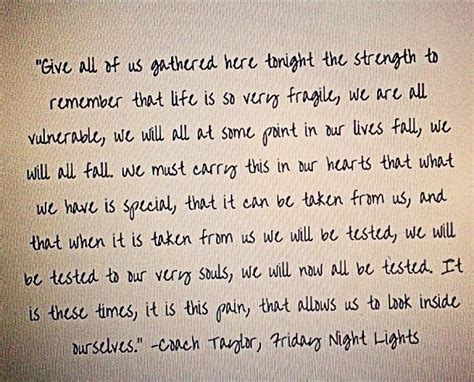 "Give all of us gathered here tonight the strength to
remember that life is so very fragile, we are all
vulnerable, we will all at some point in our lives fall, we
will all fall. We must carry this in our hearts that what
we have is special, that it can be taken from us, and
that when it is taken from us we will be tested, we will
be tested to our very souls, we will now all be tested. It
is these times, it is this pain, that allows us to look inside
ourselves." -Coach Taylor, Friday Night Lights